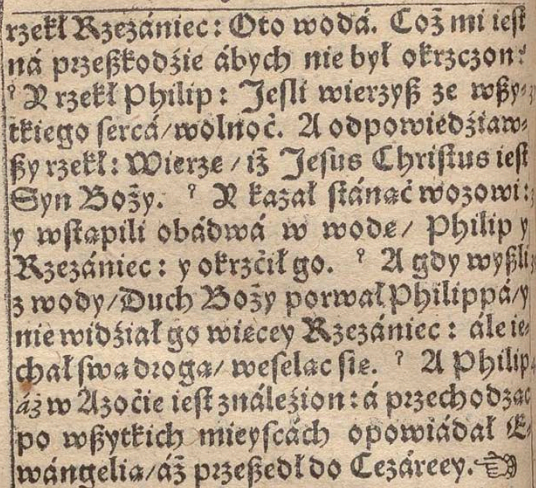 rzekł Rzezániec: Oto wodá. Coż mi ieſt
ná przeßkodźie ábych nie był okrzczon?
? Y rzekł Philip: Jeſli wierzyß ze wßy-
tkiego ſercá/wolnoć. A odpowiedźiaw-
ßy rzekł: Wierze/ iż Jeſus Chriſtus ieſt
Syn Boży. ? Y kazał ſtánąć wozowi:
y wſtąpili obádwá w wodę/ Philip y
Rzezániec: y okrzćił go. ? A gdy wyßli
z wody/Duch Boży porwał Philippá/y
nie widźiał go więcey Rzezániec: ále ie-
chał ſwą drogą/ weſeląc ſie. ? A Philip
áż w Azoćie ieſt ználeźion: á przechodząc
po wßytkich mieyſcách opowiádał E-
wángelią/áż przeßedł do Cezáreey. ☜